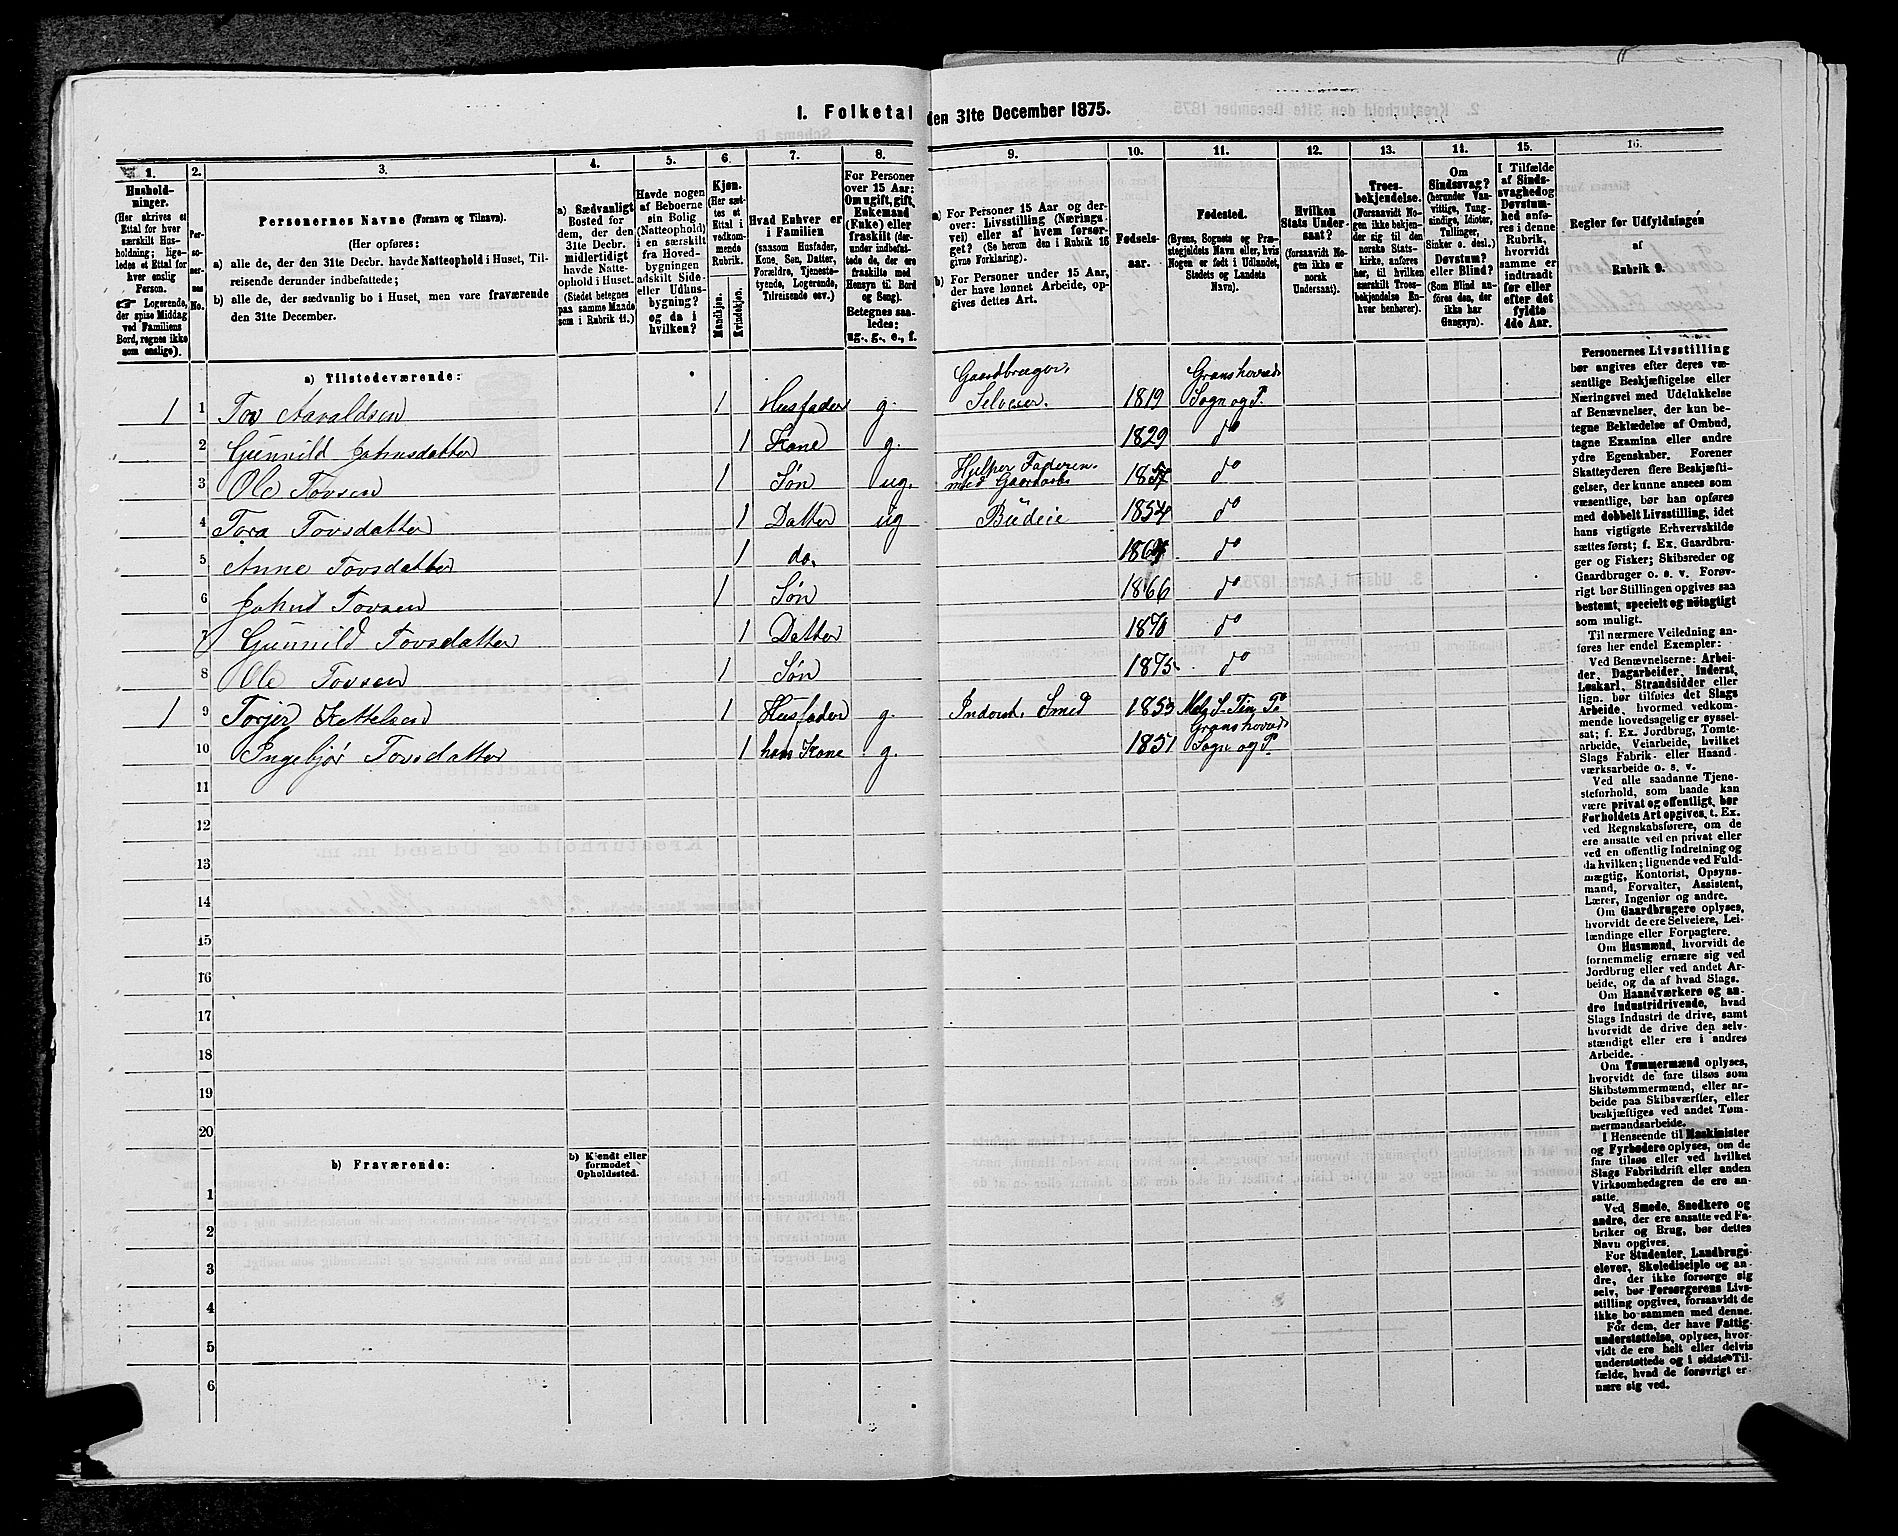 1. Folketal den 31te December 1875.
1. 2. 3. 4. 5. 6. 7. 8. 9. 10. 11. 12. 13. 14. 15. 16.
Hushold-
ninger.
(Her skrives et
Ettal for hver
særskilt Hus-
holdning; lige-
ledes et Ettal for
hver enslig
Person.
☞ Logerende,
der spise Middag
ved Familiens
Bord, regnes ikke
som enslige).
Per-
so-
ner-
nes
No.
Personernes Navne (Fornavn og Tilnavn).
(Her opføres:
a) alle de, der den 31te Decbr. havde Natteophold i Huset, Til-
reisende derunder indbefattede;
b) alle de, der sædvanlig bo i Huset, men vare fraværende
den 31te December.
a) Sædvanligt
Bosted for
dem, der den
31te Decbr.
midlertidigt
havde Natte-
ophold i Huset.
(Stedet betegnes
paa samme Maade
som i Rubrik 11.)
Havde nogen
af Beboerne
sin Bolig
(Natteophold)
i en særskilt
fra Hoved-
bygningen
adskilt Side-
eller Udhus-
bygning?
og da i
hvilken?
Kjøn.
(Her sæt-
tes et
Ettal i
vedkom-
mende
Rubrik.
Mandkjøn.
Kvindekjøn.
Hvad Enhver er
i Familien
(saasom Husfader,
Kone, Søn, Datter,
Forældre, Tjeneste-
tyende, Logerende,
Tilreisende osv.)
For Personer
over 15 Aar:
Om ugift, gift,
Enkemand
(Enke) eller
fraskilt (der-
under indbefat-
tede de, der ere
fraskilte med
Hensyn til Bord
og Seng).
Betegnes saa-
ledes:
ug., g., e., f.
a) For Personer 15 Aar og der-
over: Livsstilling (Nærings-
vei) eller af hvem forsør-
get. (Se herom den i Rubrik 16
givne Forklaring).
b) For Personer under 15 Aar,
der have lønnet Arbeide, op-
gives dettes Art.
Fødsels-
aar.
Fødested.
(Byens, Sognets og Præ-
stegjeldets Navn eller, hvis
Nogen er født i Udlandet,
Stedets og Landets
Navn).
Hvilken
Stats Under-
saat?
(forsaavidt No-
gen ikke er
norsk
Undersaat).
Troes-
bekjendelse.
(Forsaavidt No-
gen ikke bekjen-
der sig til den
norske Stats-
kirke, anføres
her, til hvilken
særskilt Troes-
bekjendelse En-
hver henhører).
Om
Sindssvag?
(herunder Van-
vittige, Tung-
sindige, Idioter,
Tullinger,
Sinker o. desl.)
Døvstum?
eller Blind?
(Som Blind an-
føres den, der
ikke har
Gangsyn).
I Tilfælde
af Sinds-
svaghed og
Døvstum-
hed anfø-
res i denne
Rubrik,
hvorvidt
samme er
indtraadt
før eller
efter det
fyldte
4de Aar.
Regler for Udfyldningen
af
Rubrik 9.
a) Tilstedeværende:
1 1 Tov Aavaldsen 1 Husfader g. Gaardbruger, Selveier. 1819 Granshoveds Sogn og P.
2 Gunnild Johnsdatter 1 Kone g. 1829 do
3 Ole Tovsen 1 Søn ug. Hulper Faderen med Gaardarb. 1857 do
4 Tora Tovsdatter 1 Datter ug Budeie 1854 do
5 Anne Tovsdatter 1 do. do
6 Johnd Tovsen 1 Søn 1866 do
7 Gunnild Tovsdatter 1 Datter 1870 do
8 Ole Tovsen 1 Søn 1875 do
1 9 Torjer Kettelsen 1 Husfader g. Inderst. Smed 1853 S. Tin P.
10 Ingebjør Tovsdatter 1 hans Kone g. 1851 Granshoveds Sogn og P.
11
12
13
14
15
16
17
18
19
20
b) Fraværende:
b) Kjendt eller
formodet
Opholdssted.
1
2
3
4
5
6
Personernes Livsstilling
bør angives efter deres væ-
sentlige Beskjæftigelse eller
Næringsvei med Udelukkelse
af Benævnelser, der kun be-
tegne Beklædelse af Ombud,
tagne Examina eller andre
ydre Egenskaber. Forener
Skatteyderen flere Beskjæfti-
gelser, der kunne ansees som
væsentlige, bør han opføres
med dobbelt Livsstilling, idet
hans vigtigste Erhvervskilde
sættes først; f. Ex. Gaardbru-
ger og Fisker; Skibsreder og
Gaardbruger o. s. v. Forøv-
rigt bør Stillingen opgives saa
bestemt, specielt og nøiagtigt
som muligt.
Til nærmere Veiledning an-
føres her endel Exempler:
Ved Benævnelserne: Arbei-
der, Dagarbeider, Inderst,
Løskarl, Strandsidder eller
lign. bør tilføies det Slags
Arbeide, hvormed vedkom-
mende hovedsagelig er syssel-
sat; f. Ex. Jordbrug, Tomte-
arbeide, Veiarbeide, hvilket
Slags Fabrik- eller Haand
værksarbeide o. s. v.
Ved alle saadanne Tjene-
steforhold, som baade kan
være privat og offentligt, bør
Forholdets Art opgives, t. Ex.
ved Regnskabsførere, om de
ere ansatte ved en privat eller
ved en offentlig Indretning og
da hvilken; lignende ved Fuld-
mægtig, Kontorist, Opsyns-
mand, Forvalter, Assistent,
Lærer, Ingeniør og andre.
Om Gaardbrugere oplyses,
hvorvidt de ere Selveiere, Lei-
lændinge eller Forpagtere.
Om Husmænd, hvorvidt de
fornemmelig ernære sig ved
Jordbrug eller ved andet Ar-
beide, og da af hvad Slags.
Om Haandværkere og an-
dre Industridrivende, hvad
Slags Industri de drive, samt
hvorvidt de drive den selv-
stændigt eller ere i andres
Arbeide.
Om Tømmermænd oplyses,
hvorvidt de fare tilsøs som
Skibstømmermænd, eller ar-
beide paa Skibsværfter, eller
beskjæftiges ved andet Tøm-
mermandsarbeide.
I Henseende til Maskinister
og Fyrbødere oplyses, om de
fare tilsøs eller ved hvilket
Slags Fabrikdrift eller anden
Virksomhedsgren de ere an-
satte.
Ved Smede, Snedkere og
andre, der ere ansatte ved Fa-
briker og Brug, bør dettes
Navn opgives.
For Studenter, Landbrugs-
elever, Skoledisciple og an-
dre, der ikke forsørge sig
selv, bør Forsørgerens Livs-
stilling opgives, forsaavidt de
ikke bo sammen med denne.
For dem, der have Fattig-
understøttelse, oplyses, hvor-
vidt de ere helt eller delvis
understøttede og i sidste Til-
fælde, hvad de forøvrigt er-
nære sig ved.